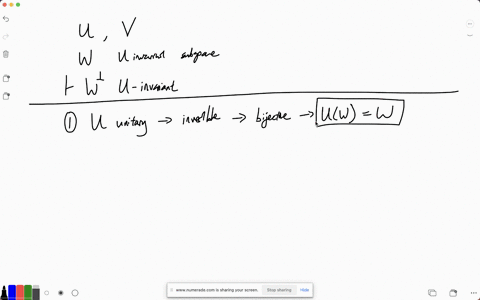 U , V
W U invariant subspace
⊢ W⊥ U-invariant
① U unitary → invertible → bijective → U(W) = W
www.numerade.com is sharing your screen. Stop sharing Hide